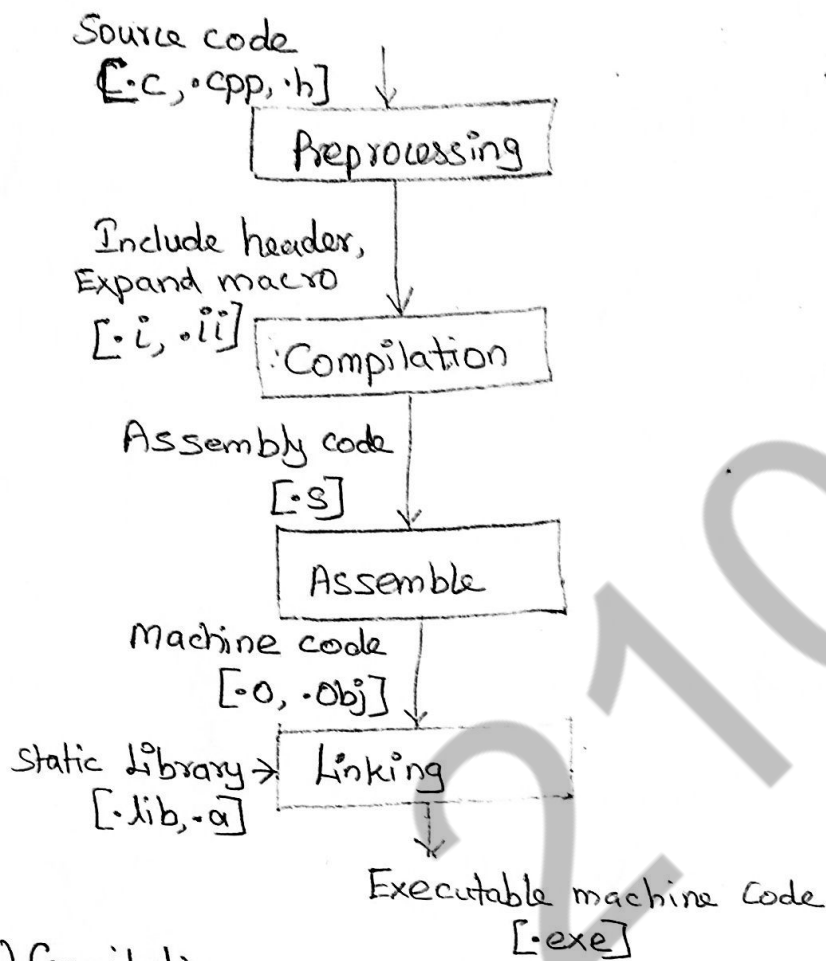 Source code
[.c, .cpp, .h]
Preprocessing
Include header,
Expand macro
[.i, .ii]
Compilation
Assembly code
[.s]
Assemble
Machine code
[.o, .obj]
Static Library →
[.lib, .a]
Linking
Executable machine code
[.exe]
210